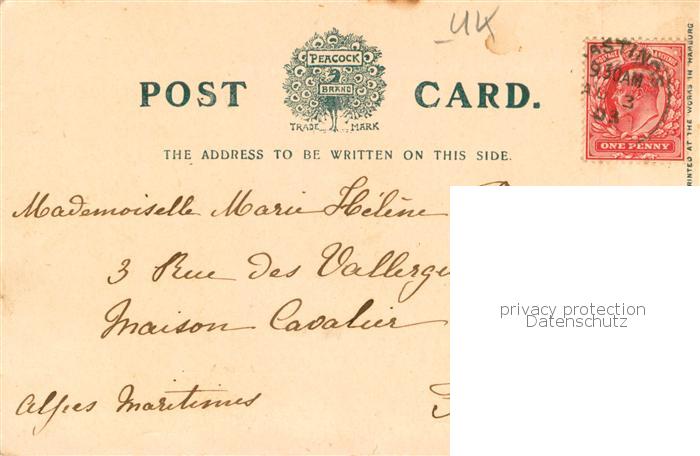 UK
PEACOCK
BRAND
TRADE MARK
POST CARD.
THE ADDRESS TO BE WRITTEN ON THIS SIDE.
ASTINGS
9 30 AM
3
03
ONE PENNY
PRINTED AT THE WORKS IN HAMBURG
Mademoiselle Marie Hélène
3 Rue des Vallergu
Maison Cavalier
Alpes Maritimes
privacy protection
Datenschutz